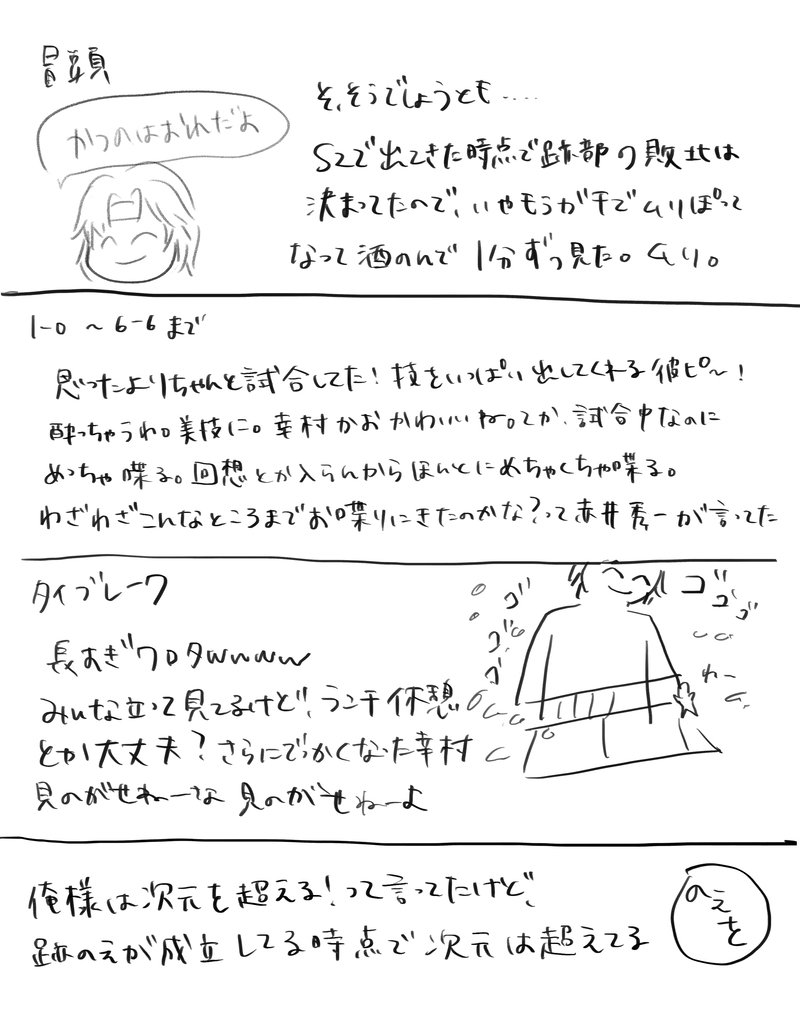 冒頭
かつのはおれだよ
そ、そうでしょうとも……
S2で出てきた時点で跡部の敗北は
決まってたので、いやもうガチでムリぽって
なって酒のんで1分ずつ見た。ムリ。
1-0 ～ 6-6まで
思ったよりちゃんと試合してた！技をいっぱい出してくれる彼ピ～！
酔っちゃうわ。美技に。幸村かおかわいいね。てか、試合中なのに
めっちゃ喋る。回想とか入らんからほんとにめちゃくちゃ喋る。
わざわざこんなところまでお喋りにきたのかな？って赤井秀一が言ってた
タイブレーク
ゴゴゴ
ゴゴゴ
わー
長すぎワロタwwwww
みんな立って見てるけど、ランチ休憩
とか大丈夫？さらにでっかくなった幸村
見のがせねーな 見のがせねーよ
俺様は次元を超える！って言ってたけど、
跡のえが成立してる時点で次元は超えてる
のえを